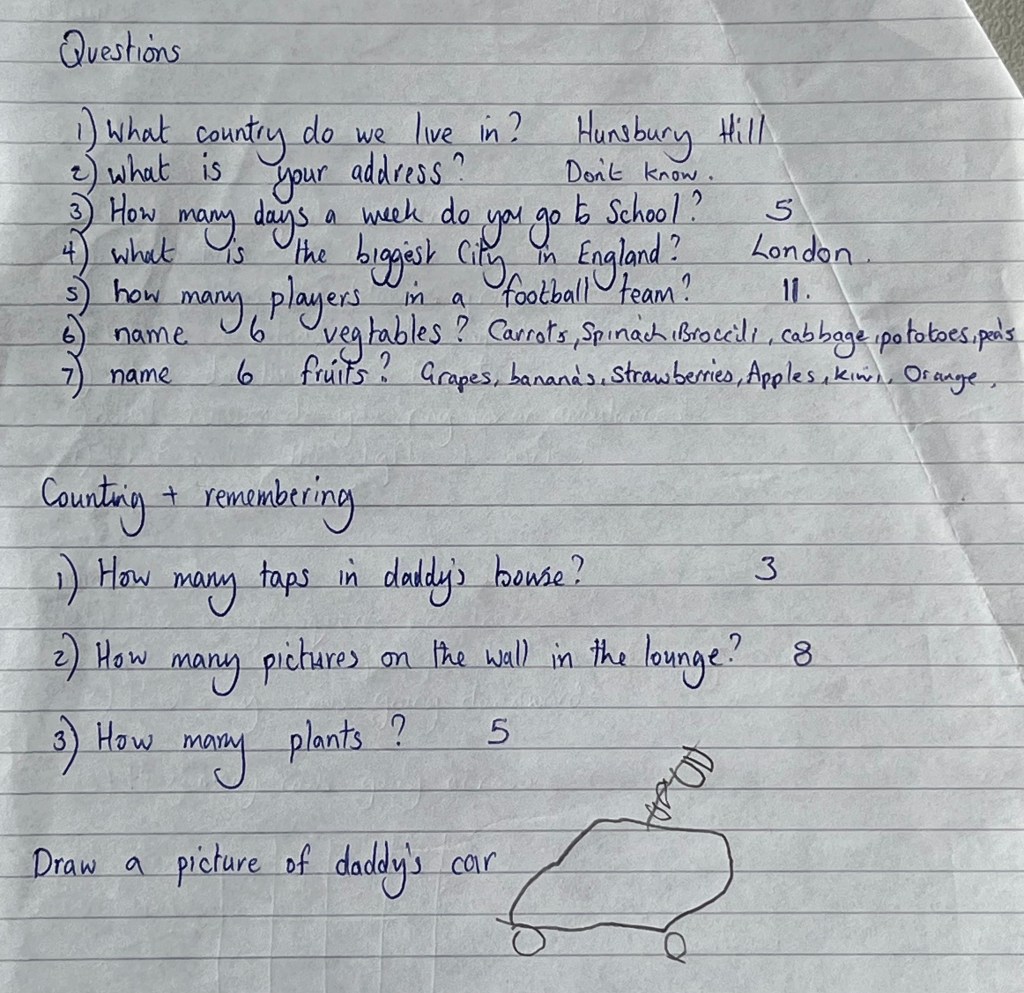 Questions
1) What country do we live in? Hunsbury Hill
2) what is your address? Don't know.
3) How many days a week do you go to School? 5
4) what is the biggest City in England? London.
5) how many players in a football team? 11.
6) name 6 vegtables? Carrots, Spinach, Broccili, cabbage, pototoes, pea's
7) name 6 fruits? Grapes, banana's, Strawberries, Apples, kiwi, Orange,
Counting + remembering
1) How many taps in daddy's house? 3
2) How many pictures on the wall in the lounge? 8
3) How many plants? 5
Draw a picture of daddy's car